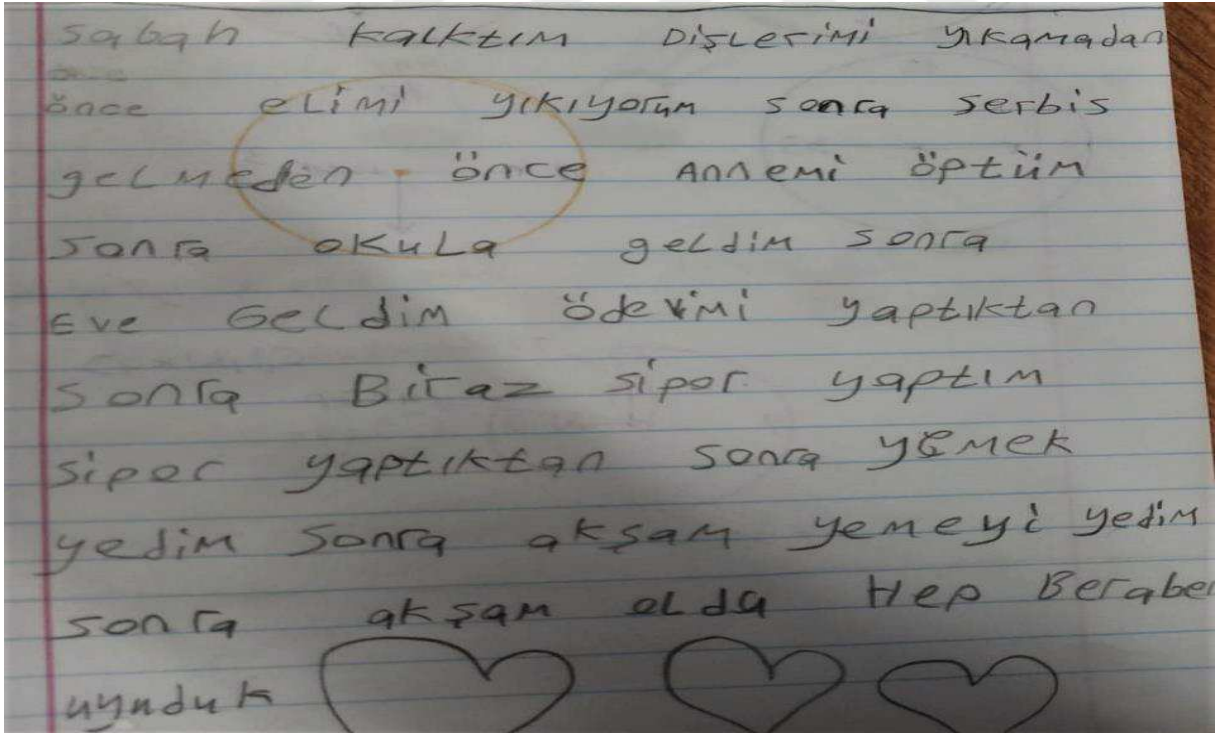 sabah kalktım Dişlerimi yıkamadan
önce elimi yıkıyorum sonra serbis
gelmeden önce Annemi öptüm
sonra okula geldim sonra
Eve Geldim ödevimi yaptıktan
sonra Biraz sipor yaptım
sipor yaptıktan sonra yemek
yedim sonra akşam yemeyi yedim
sonra akşam olda Hep Beraber
uyuduk